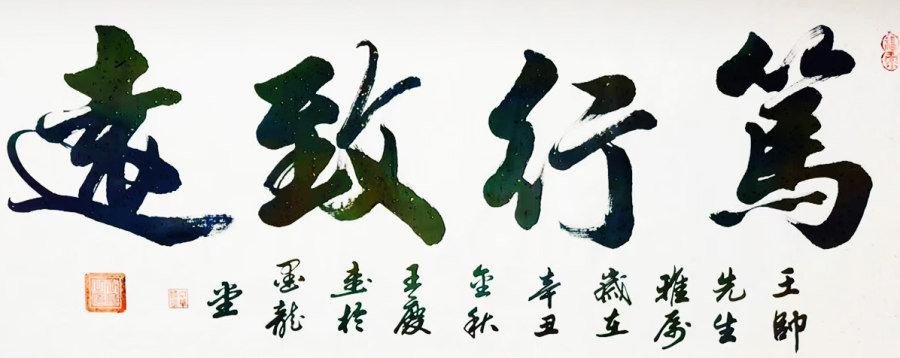 篤行致遠
王帥
先生
雅属
歲在
辛丑
金秋
王慶
書於
墨龍
堂